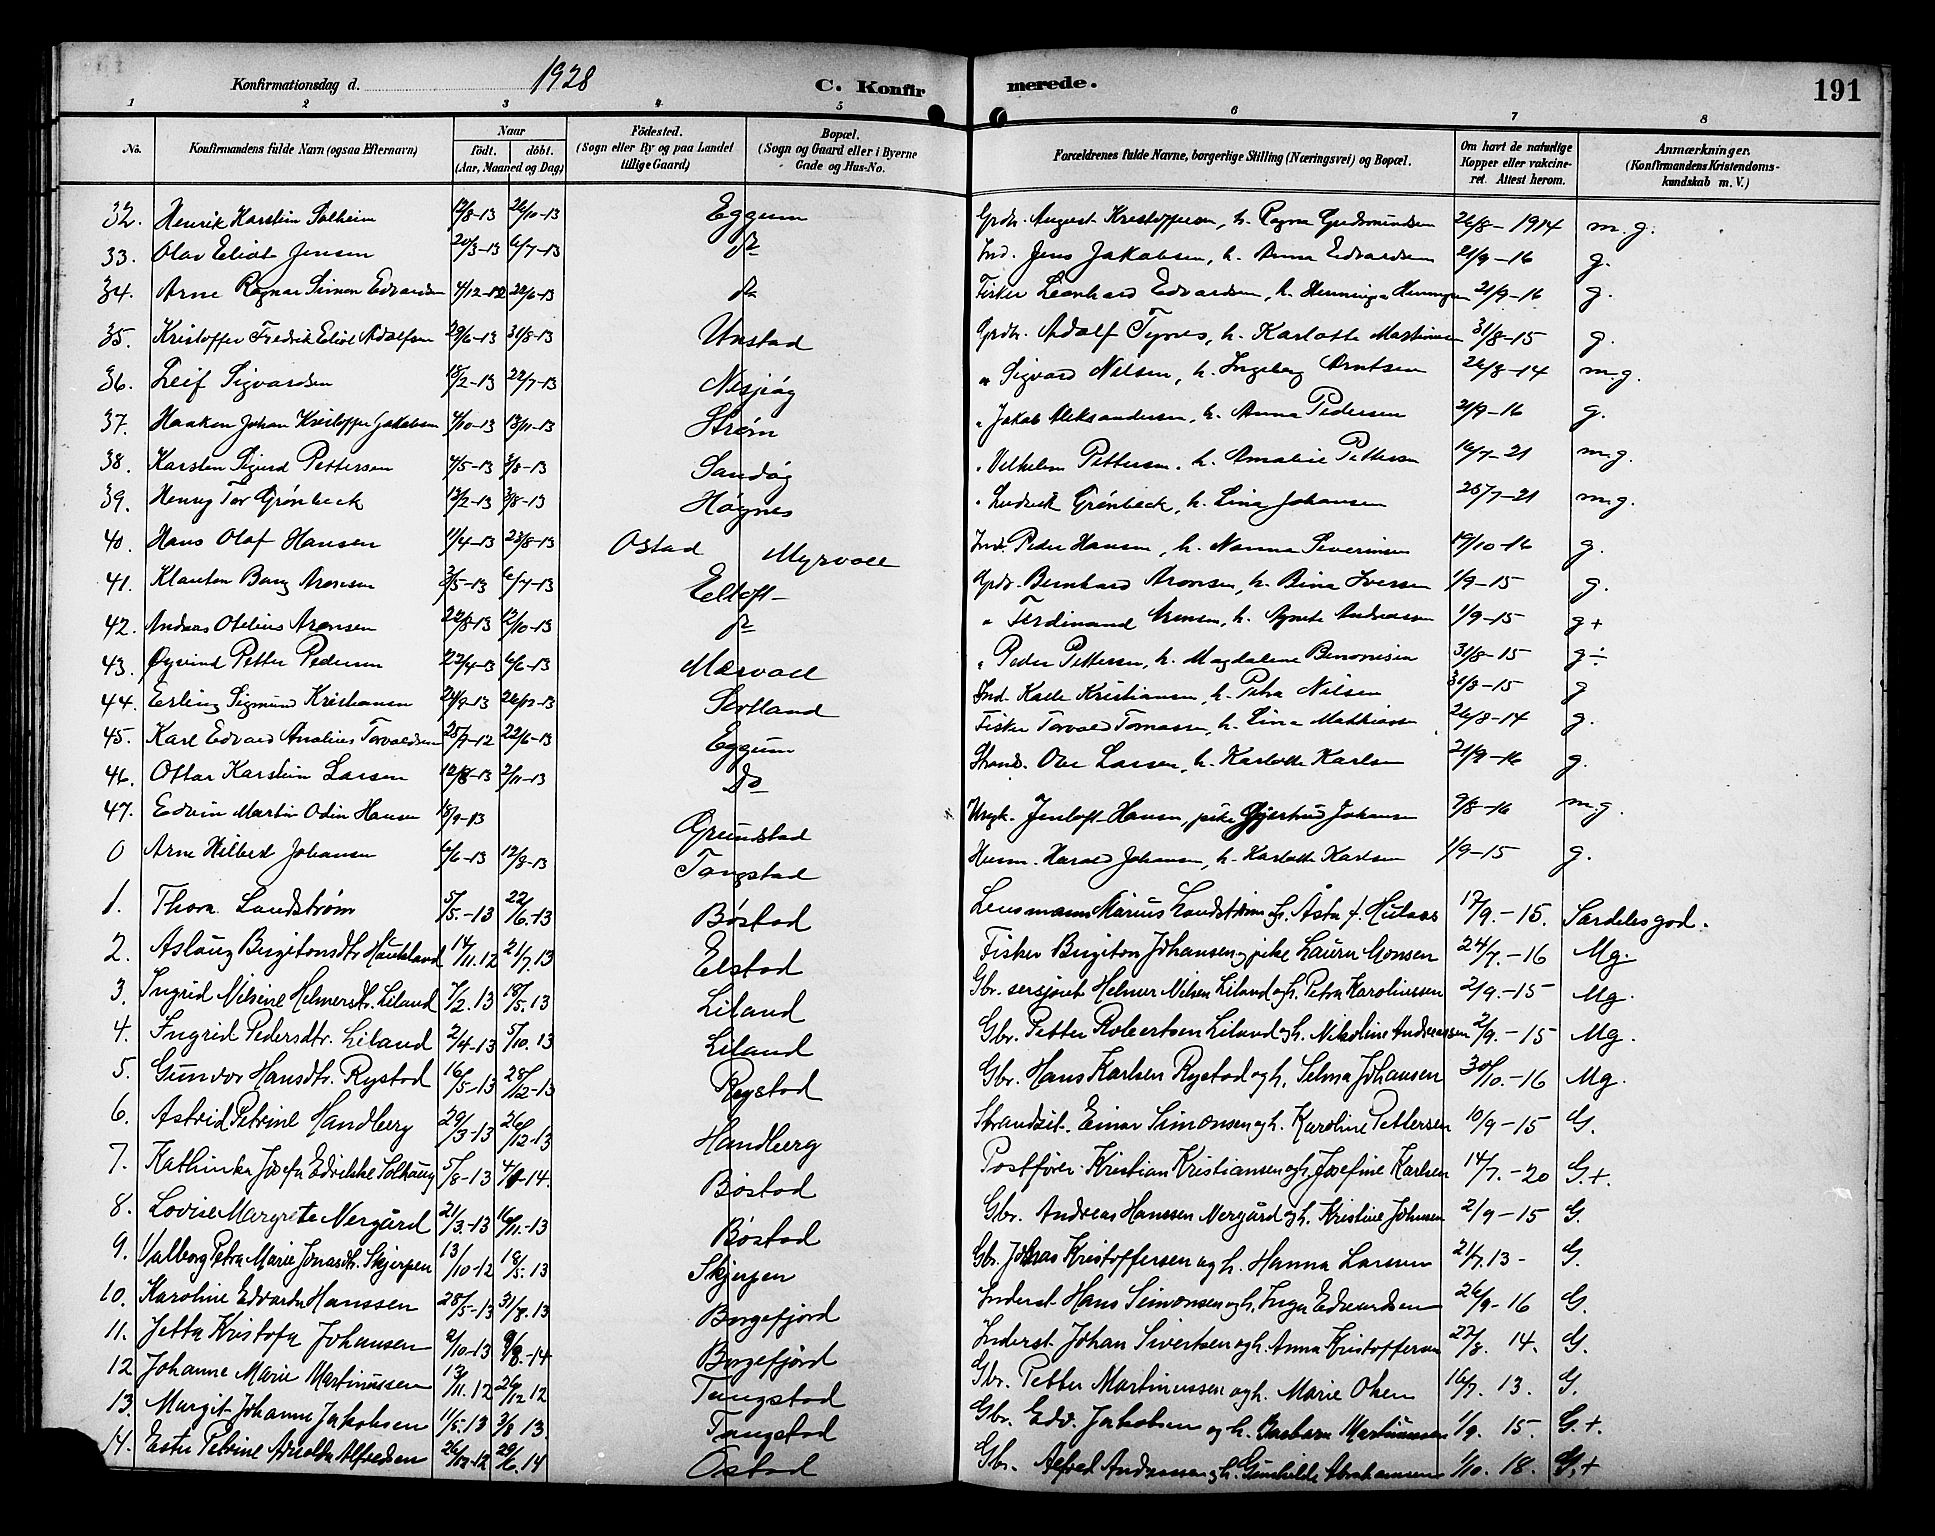 Konfirmationsdag d. 1928 C. Konfirmerede. 191
1 2 3 4 5 6 7 8
No. Konfirmandens fulde Navn (ogsaa Efternavn) Naar födt. döbt. (Aar, Maaned og Dag) Födested. (Sogn eller By og paa Landet tillige Gaard) Bopæl. (Sogn og Gaard eller i Byerne Gade og Hus-No. Forældrenes fulde Navne, borgerlige Stilling (Næringsvei) og Bopæl. Om havt de naturlige Kopper eller vakcineret. Attest herom. Anmærkninger. (Konfirmandens Kristendomskundskab m. V.)
32. Henrik Karstein Solheim 26/10-13 Eggum Grdbr. August Kristoffersen, h. Ragna Gudmundsen 26/8-1914 m.g.
33. Olav Eliot Jensen 20/3-13 6/7-13 do Ind. Jens Jakobsen, h. Anna Edvardsen 21/9-16 g.
34. Arne Ragnar Simon Edvardsen 4/12-12 22/6-13 do Fisker Leonhard Edvardsen, h. Henninga Henningsen 21/9-16 g.
35. Kristoffer Fredrik Eliot Adolfsen 29/6-13 31/8-13 Unstad Grdbr. Adolf Tynes, h. Karlotte Martinsen 31/8-15 g.
36. Leif Sigvardsen 18/2-13 22/7-13 Nesjeøy " Sigvard Nilsen, h. Ingeborg Arntsen 26/8-14 m.g.
37. Haakon Johan Kristoffer Jakobsen 4/10-13 13/11-13 Strøm " Jakob Aleksandersen, h. Anna Pedersen 21/9-16 g.
38. Karsten Sigurd Pettersen 4/5-13 3/8-13 Sandøy " Vilhelm Pettersen, h. Amalie Pettersen 16/7-21 m.g.
39. Henry Tor Grønbeck 13/2-13 3/8-13 Hågnes " Ludvik Grønbeck, h. Lina Johansen 25/7-21 m.g.
40. Hans Olaf Hansen 11/4-13 23/8-13 Ostad Myrvoll Ind. Peder Hansen, h. Nanna Severinsen 19/10-16 g.
41. Klauton Bang Aronsen 3/5-13 6/7-13 Eltoft Grdbr. Bernhard Aronsen, h. Bina Iversen 1/9-15 g.
42. Andreas Otelius Aronsen 22/8-13 12/10-13 do " Ferdinand Aronsen, h. Agnete Andreassen 1/9-15 g+
43. Øyvind Petter Pedersen 22/4-13 6/6-13 Mærvoll " Peder Pettersen, h. Magdalene Benonisen 31/8-15 g÷
44. Erling Sigmund Kristiansen 21/9-13 Sortland Ind. Kalle Kristiansen, h. Petra Nilsen 31/8-15 g
45. Karl Edvard Analius Torvaldsen 25/7-12 22/6-13 Eggum Fisker Torvald Tomassen, h. Lina Mathiasen 26/8-14 g.
46. Ottar Karstein Larsen 12/8-13 2/11-13 Do Strands. Ove Larsen, h. Karlotte Karlsen 21/9-16 g.
47. Edvin Martin Odin Hansen 18/9-13 Grundstad Ungk. Jentoft Hansen, pike Gjertrud Johansen 9/8-16 m.g.
0 Arne Hilbert Johansen 6/6-13 12/8-13 Tangstad Husm. Harald Johansen, h. Karlotte Karlsen 1/9-15 g.
1. Thora Landstrøm 5/5.-13 22/6.-13 Bøstad Lensmann Marius Landstrøm og h. Åsta f. Hulaas 17/9.-15. Særdelesgod.
2. Aslaug Brigitonsdtr. Haukland 14/11.12 21/7.13 Elstad Fisker Brigiton Johansen og pike Laura Monsen 24/7.-16 Mg.
3. Ingrid Nilsine Helmersdtr. Liland 7/2.13 18/5.13 Liland Gbr. sersjant Helmer Nilsen Liland og h. Petra Karoliussen 2/9.-15 Mg.
4. Ingrid Pedersdtr. Liland 2/4-13 5/10.13 Liland Gbr. Petter Robertsen Liland og h. Nikoline Andreassen 2/9.-15 Mg.
5. Gunvor Hansdtr. Rystad 16/5-13 28/12-13 Rystad Gbr. Hans Karlsen Rystad og h. Selma Johansen 30/10.-16 Mg.
6. Astrid Petrine Handberg 29/3-13 26/12-13 Handberg Strandsit. Einar Simonsen og h. Karoline Pettersen 10/9-15 G.
7. Kathinka Josefa Edvikke Solhaug 5/8-13 Bøstad Postfører Kristian Kristiansen og h. Josefine Karlsen 14/7.-20 G.+.
8. Lovise Margrete Nergård 21/3.-13 16/11.-13 Bøstad Gbr. Andreas Hanssen Nergård og h. Kristine Johnsen 2/9-15 G.
9. Valborg Petra Marie Jonasdtr. Skjerpen 13/10-12 18/5.13 Skjerpen Gbr. Johas Kristoffersen og h. Hanna Larsen 21/7.13- G.
10. Karoline Edvarda Hanssen 28/5-13 31/8.13 Borgefjord Inderst. Hans Simonsen og h. Inga Edvardsen 26/9-16 G.
11. Jetta Kristofa Johansen 2/10-13 9/8.-14 Borgefjord Inderst. Johan Sivertsen og h. Anna Kristoffersen 27/8. 14. G.
12 Johanne Marie Martinussen 13/11.12 26/12 12 Tangstad Gbr. Petter Martinussen og h. Marie Olsen 16/7. 13. G.
13. Margit Johanne Jakobsen 11/5.13 3/8 13. Tangstad Gbr. Edv. Jakobsen og h. Barbara Martinussen 1/9. 15. G.+.
14. Ester Petrine Arnolda Alfredsen 26/12-12 29/6.14 Ostad Gbr. Alfred Andreassen og h. Gunhilde Abrahamsen 1/10. 18. G.+